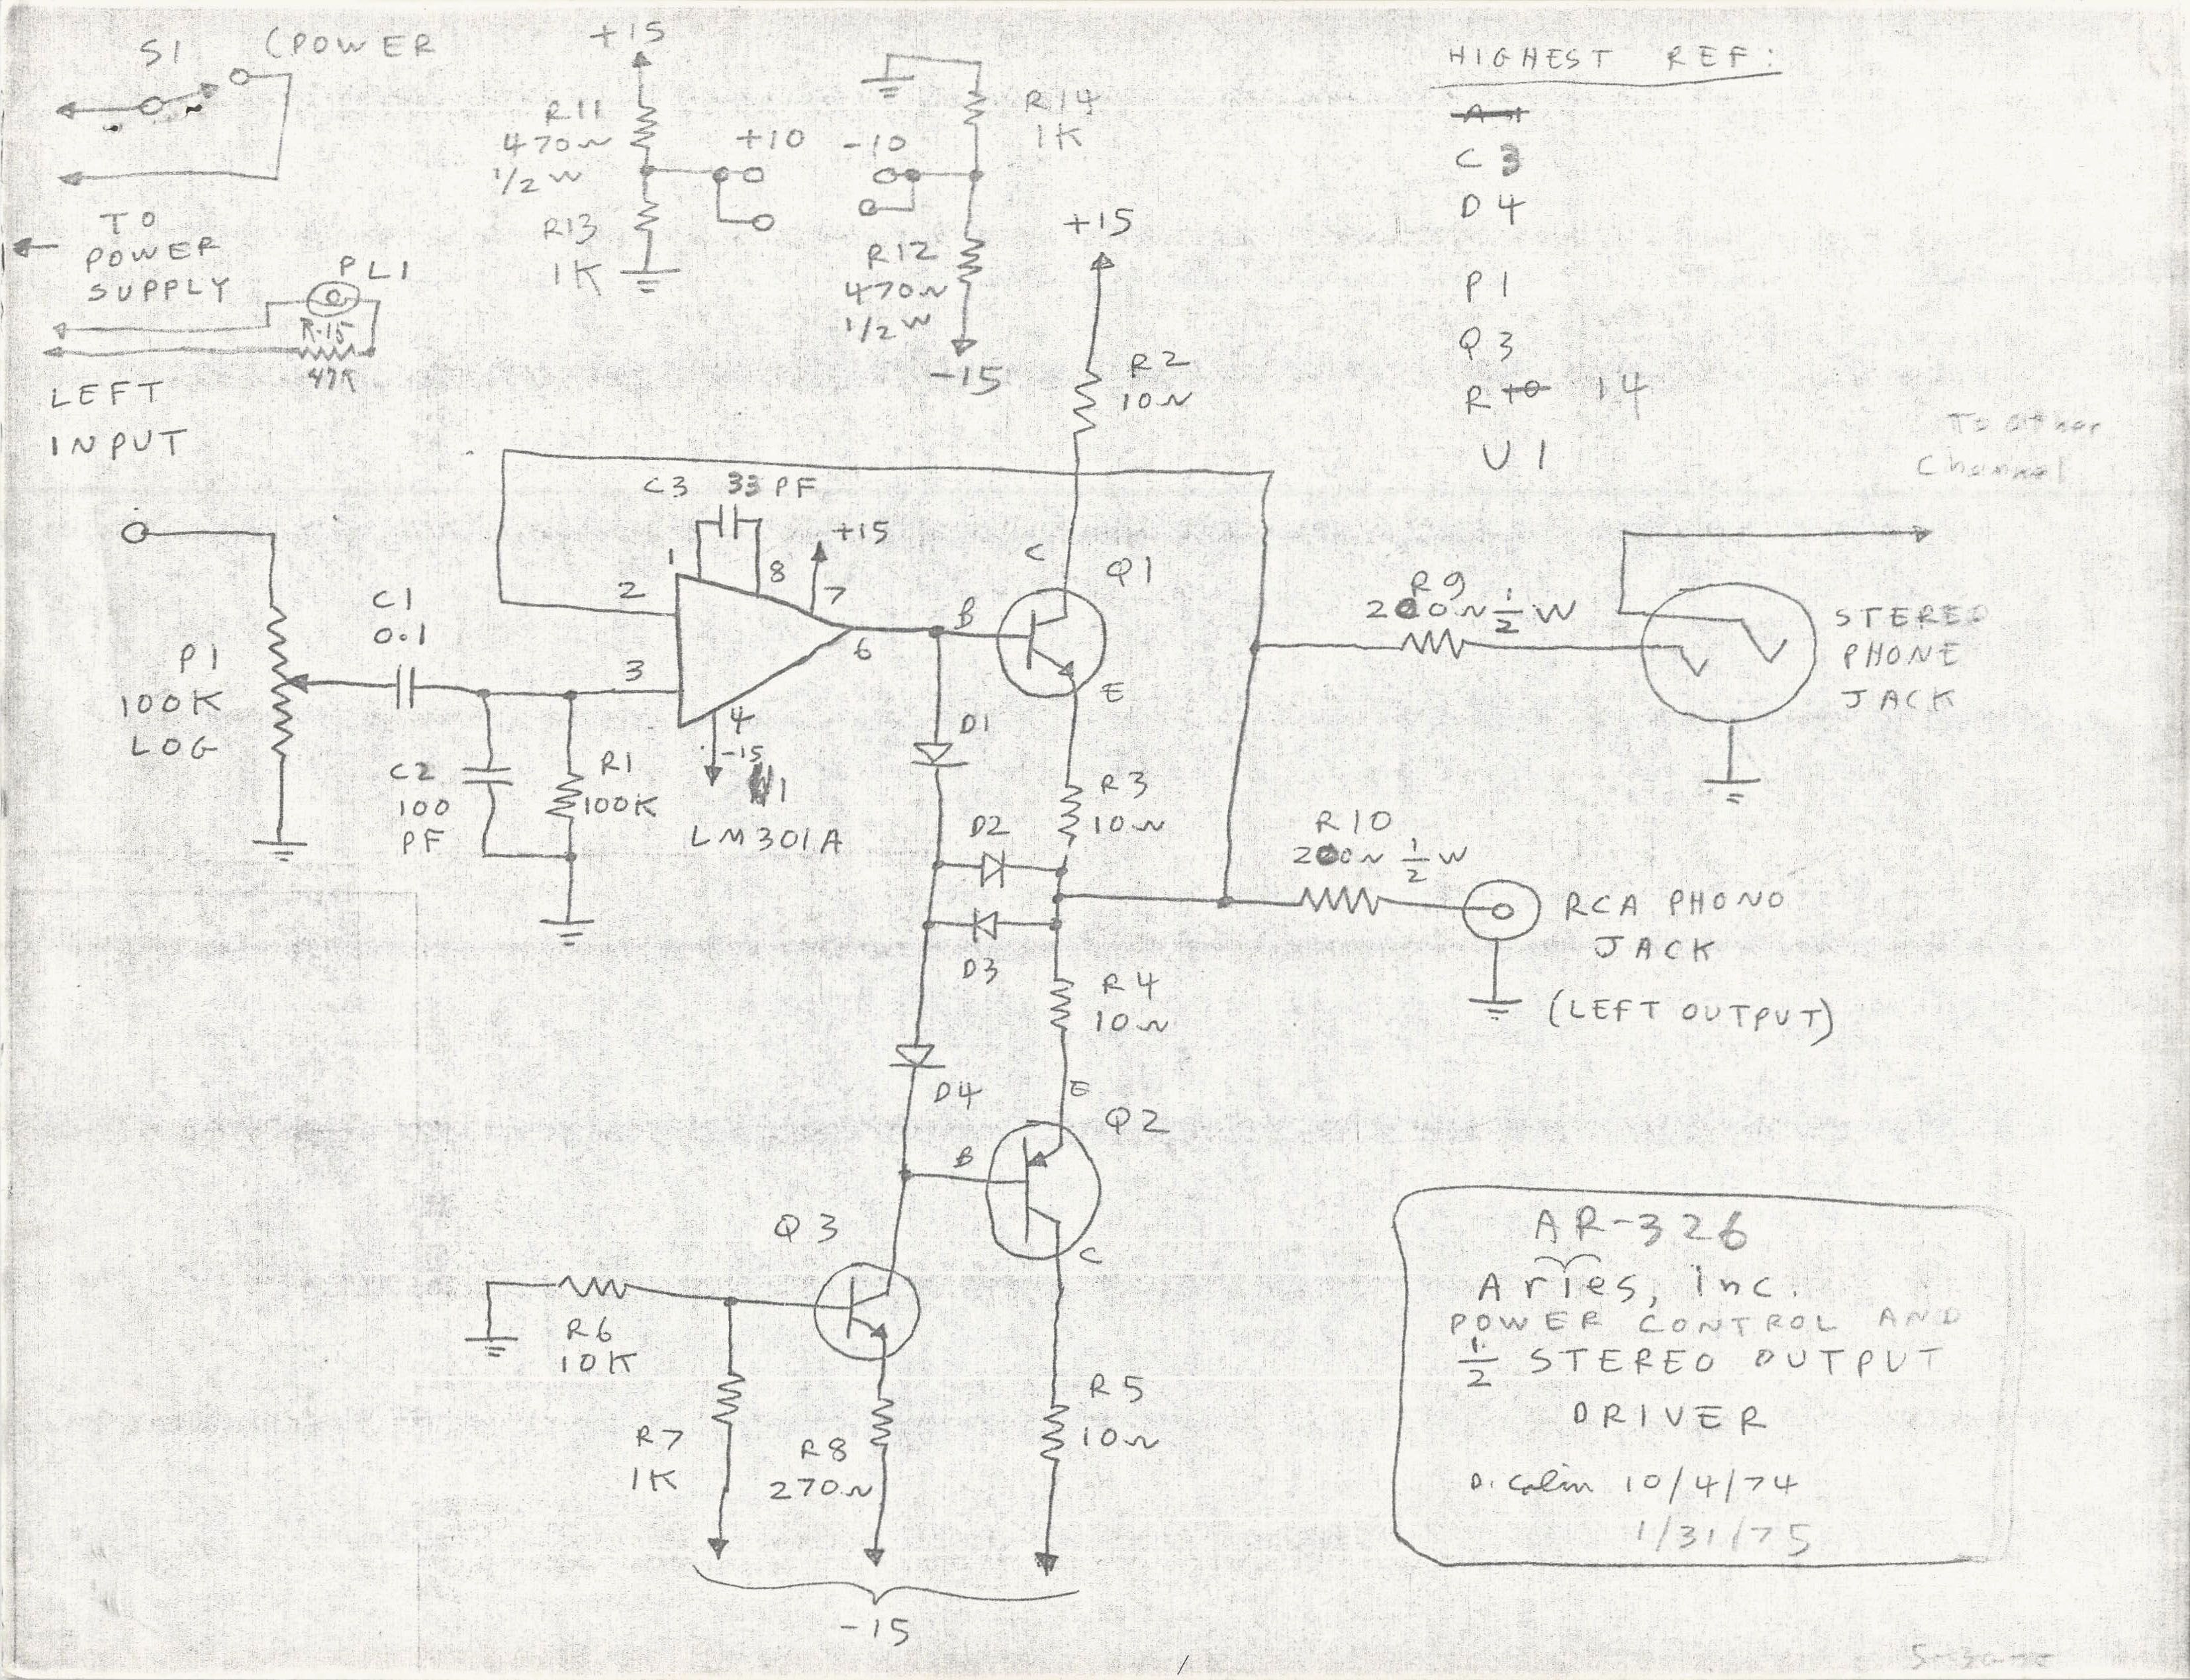 S1 (POWER
TO
POWER
SUPPLY
PL1
R15
47K
+15
R11
470Ω
1/2 W
R13
1K
+10
-10
R14
1K
R12
470Ω
1/2 W
-15
+15
R2
10Ω
HIGHEST REF:
C3
D4
P1
Q3
R 10 14
U1
To Other
Channel
LEFT
INPUT
P1
100K
LOG
C1
0.1
C2
100
PF
R1
100K
C3 33 PF
1
8
+15
7
2
3
6
4
-15
U1
LM301A
B
C
Q1
E
D1
R3
10Ω
D2
D3
R4
10Ω
D4
E
Q2
B
C
Q3
R6
10K
R7
1K
R8
270Ω
R5
10Ω
-15
R9
200Ω 1/2 W
STEREO
PHONE
JACK
R10
200Ω 1/2 W
RCA PHONO
JACK
(LEFT OUTPUT)
AR-326
Aries, Inc.
POWER CONTROL AND
1/2 STEREO OUTPUT
DRIVER
D. Colin 10/4/74
1/31/75